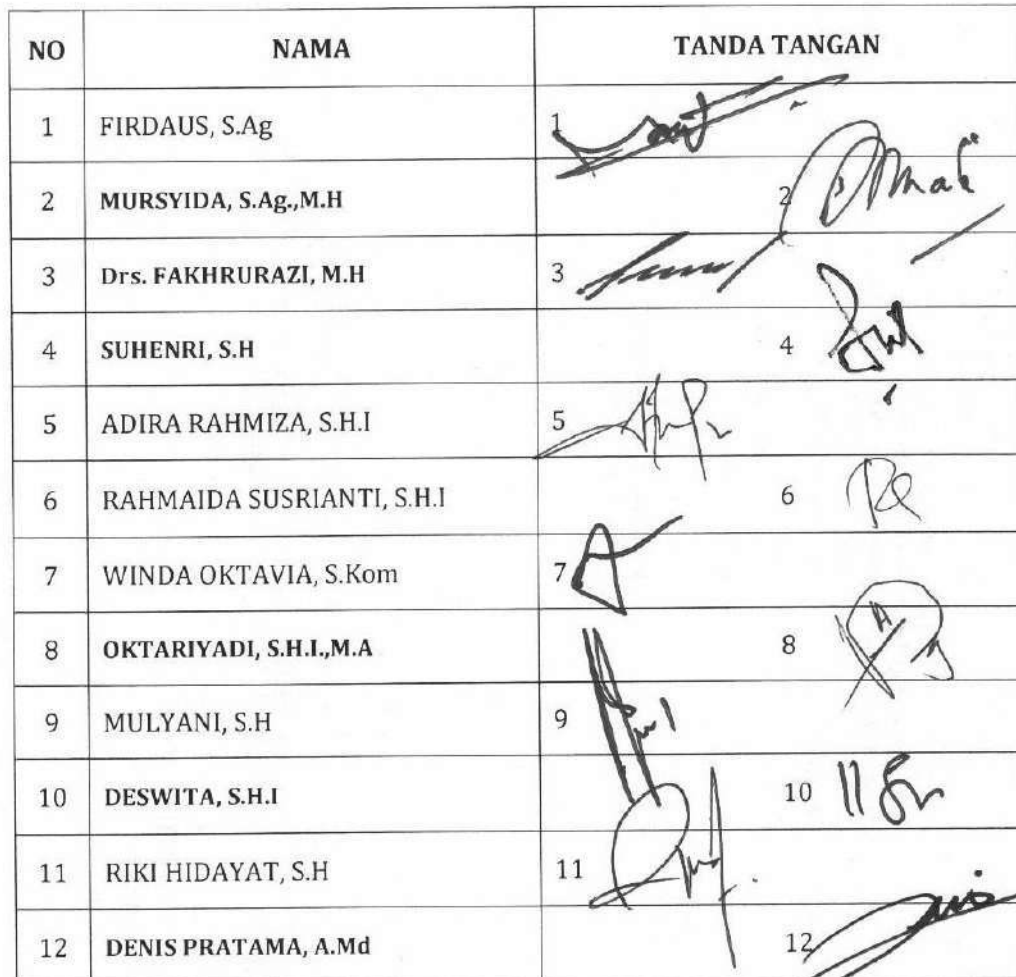 NO NAMA TANDA TANGAN
1 FIRDAUS, S.Ag 1
2 MURSYIDA, S.Ag.,M.H 2
3 Drs. FAKHRURAZI, M.H 3
4 SUHENRI, S.H 4
5 ADIRA RAHMIZA, S.H.I 5
6 RAHMAIDA SUSRIANTI, S.H.I 6
7 WINDA OKTAVIA, S.Kom 7
8 OKTARIYADI, S.H.I.,M.A 8
9 MULYANI, S.H 9
10 DESWITA, S.H.I 10
11 RIKI HIDAYAT, S.H 11
12 DENIS PRATAMA, A.Md 12